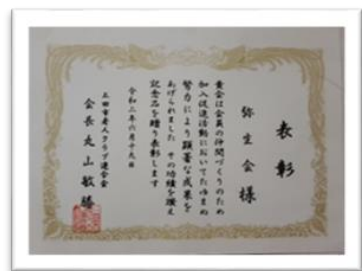 表彰
弥生会様
貴会は会員の仲間づくりのため
加入促進活動においてたゆまぬ
努力により顕著な成果を
あげられました その功績を讃え
記念品を贈り表彰します
令和二年六月十九日
上田市老人クラブ連合会
会長 丸山敏勝